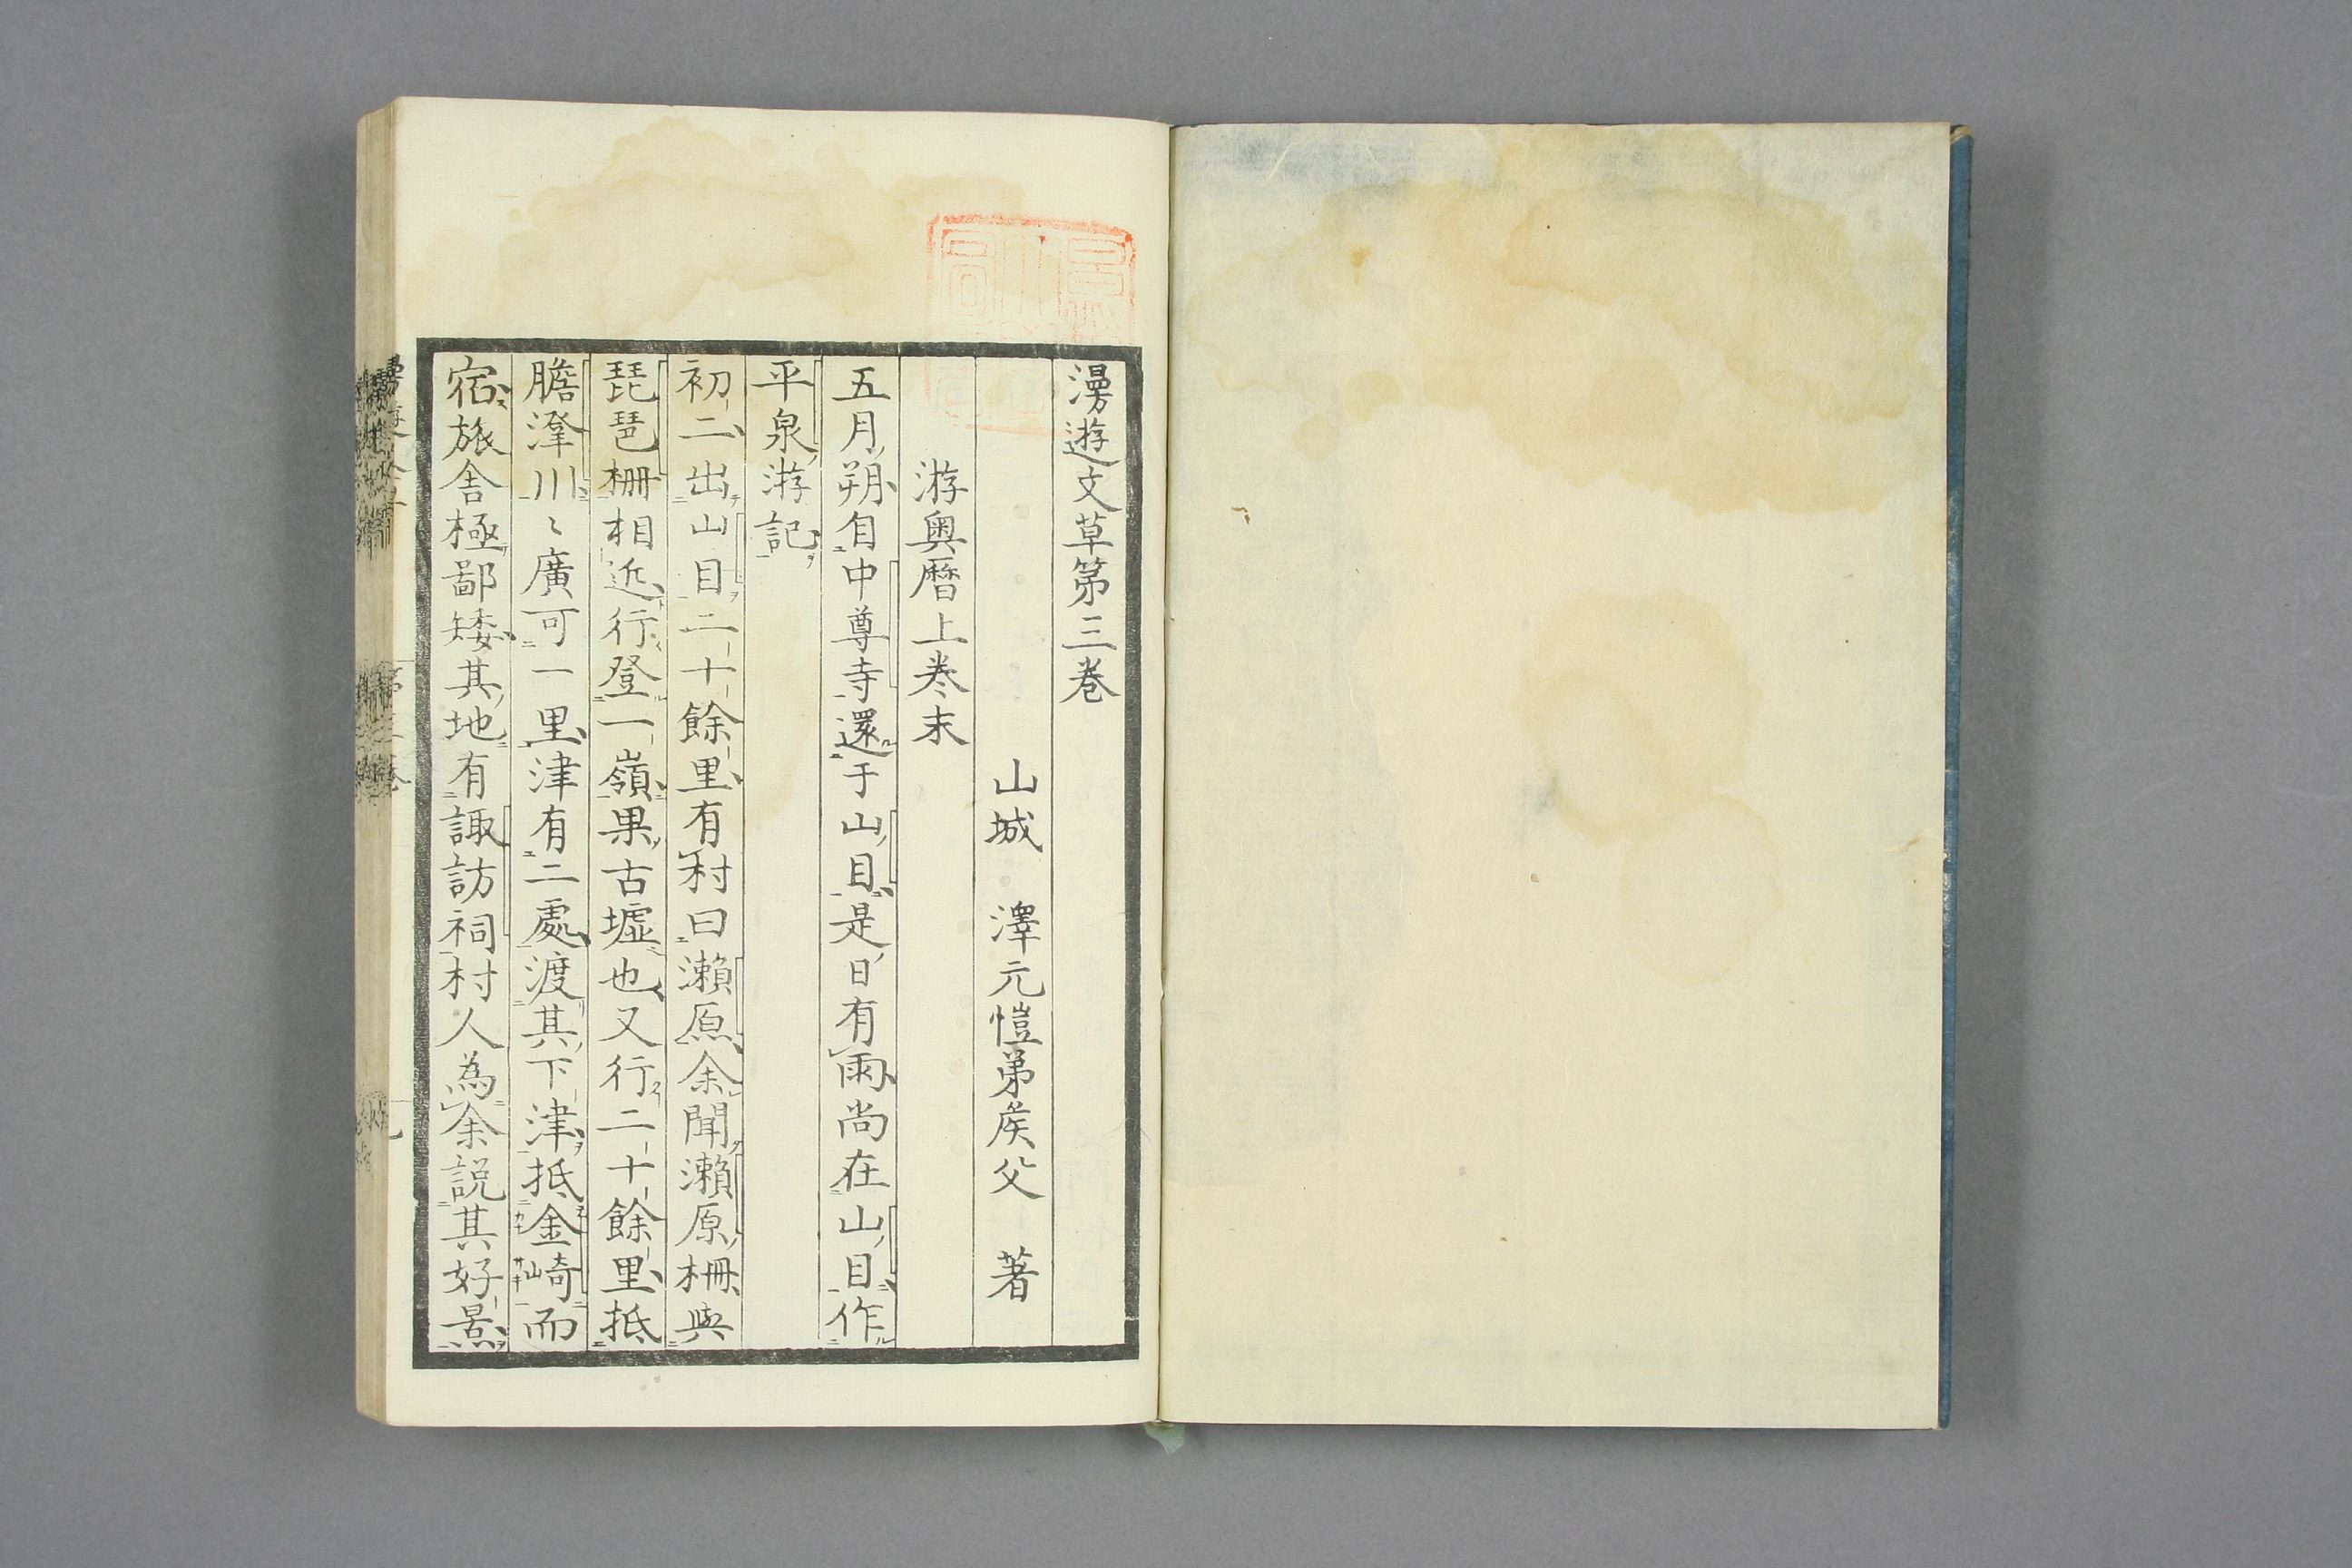 漫遊文草第三巻
山城　澤元愷弟侯父　著
游奧曆上卷末
五月朔自中尊寺還于山目是日有雨尚在山目作
平泉游記
初二出山目二十餘里有村曰瀨原余聞瀨原柵與
琵琶柵相近行登一嶺果古墟也又行二十餘里抵
膽澤川〻廣可一里津有二處渡其下津抵金崎而
宿旅舍極鄙矮其地有諏訪祠村人為余説其好景